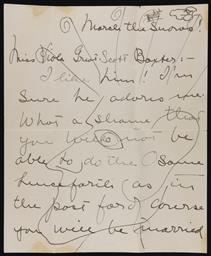 March the Second!
Miss Viola Brothers-Scott
Baxter:-
I like him! I'm
sure he adores me.
What a shame that
you will not be
able to do the same
henceforth as in
the past for of course
you will be married